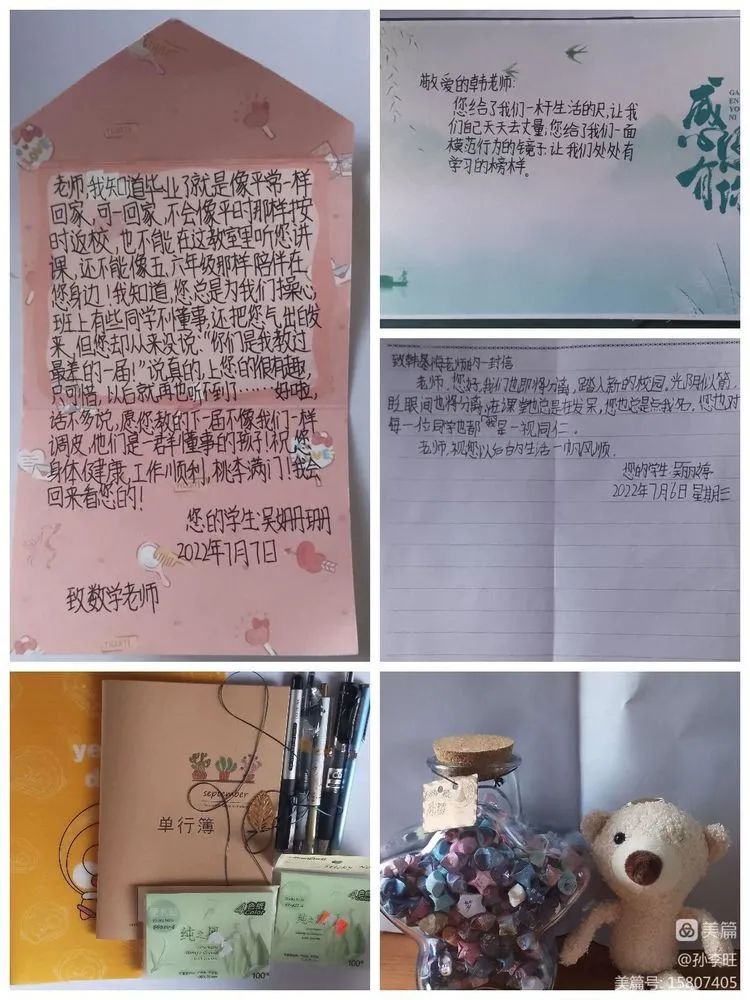 老师,我知道毕业了就是像平常一样
回家,可一回家,不会像平时那样按
时返校,也不能在这教室里听您讲
课,还不能像五、六年级那样陪伴在
您身边!我知道,您总是为我们操心,
班上有些同学不懂事,还把您气出白发
来,但您却从来没说:“你们是我教过
最差的一届!”说真的,上您的很有趣,
只可惜,以后就再也听不到了……好啦,
话不多说,愿您教的下一届不像我们一样
调皮,他们是一群懂事的孩子!祝您
身体健康,工作顺利,桃李满门!我会
回来看您的!
您的学生:吴姗珊
2022年7月7日
致数学老师
THANKS
敬爱的韩老师:
您给了我们一杆生活的尺,让我
们自己天天去丈量;您给了我们一面
模范行为的镜子,让我们处处有
学习的榜样。
感恩有你
GA
EN
YO
NI
致韩基海老师的一封信
老师,您好,我们也即将分离,踏入新的校园。光阴似箭,
眨眼间也将分离,在课堂也总是在发呆,您也总是点我名,您也对
每一位同学也都是一视同仁。
老师,祝您以后的生活一帆风顺。
您的学生 吴丽婷
2022年7月6日 星期三
september
单行簿
4色
Color
纯之
100
100
美篇
@孙李旺
美篇号: 15807405